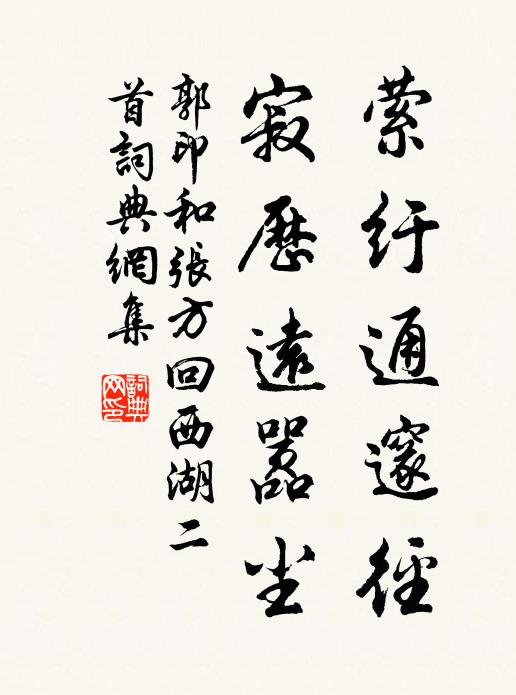 萦纡通邃徑
寂歷遠嚣坐
郭印和張方回西湖二
首詞典網集
詞典网印